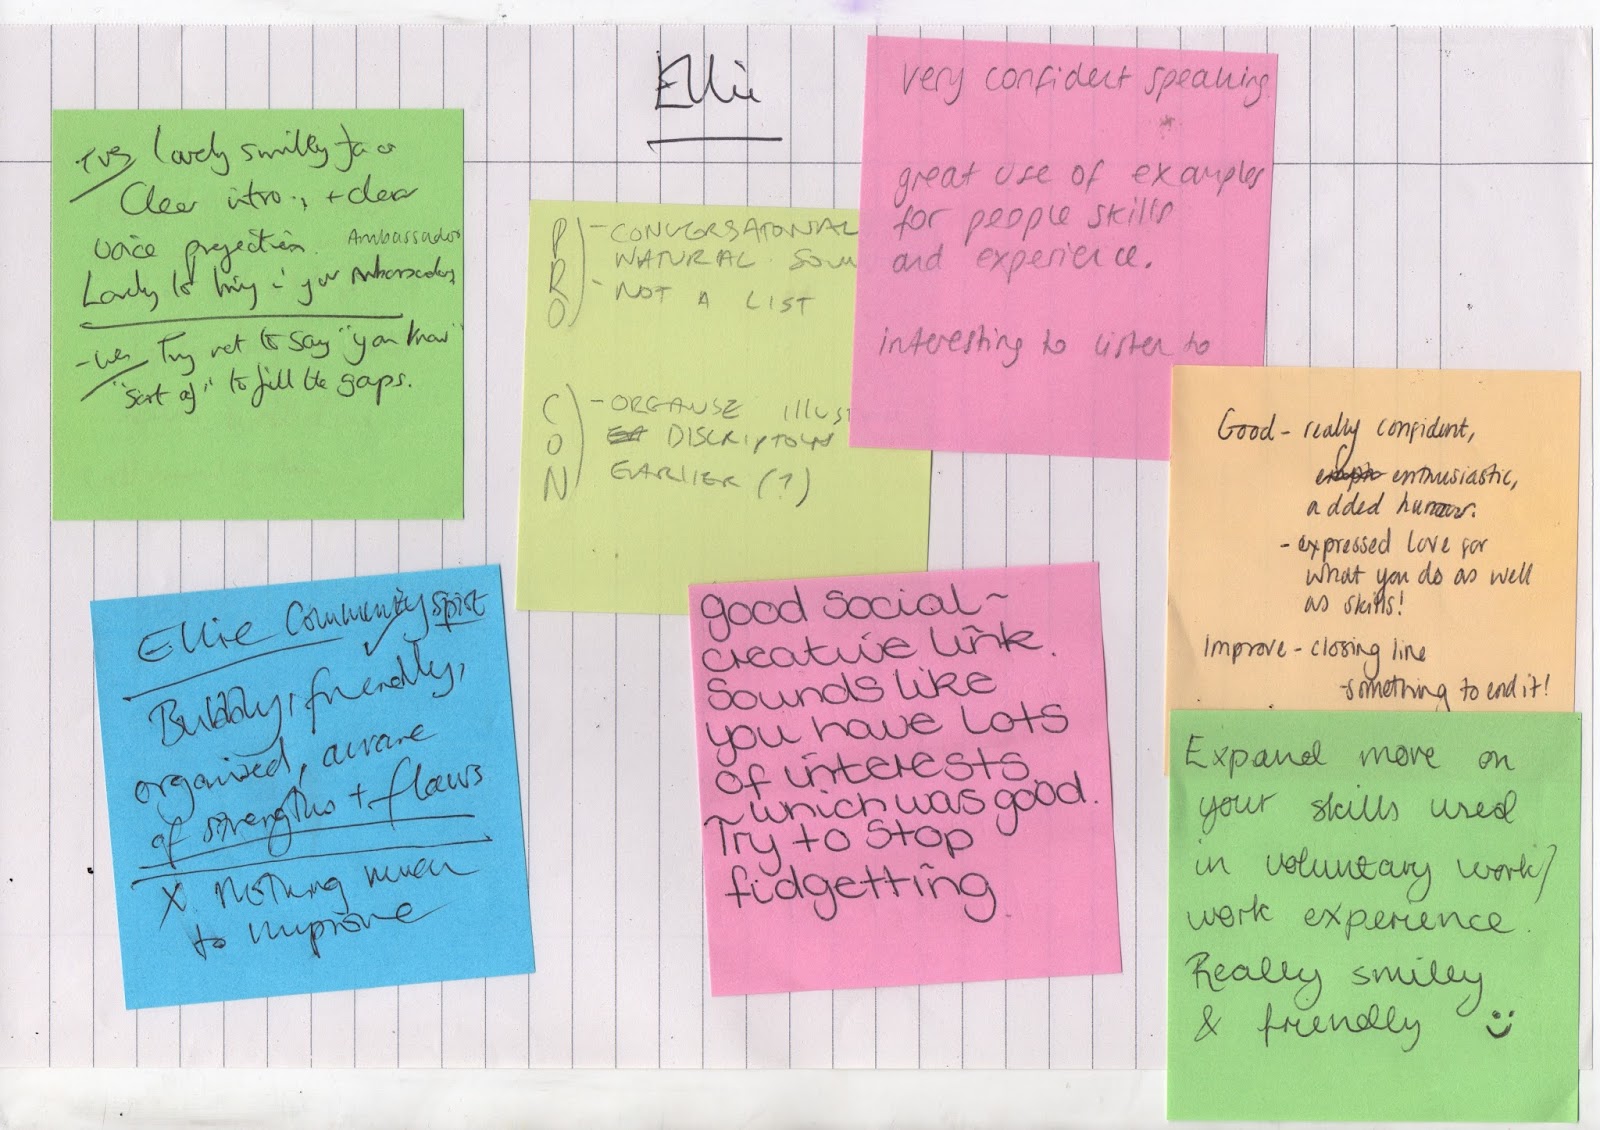 Ellie
+ves Lovely smiley face
Clear intro., + clear
voice projection. Ambassador
Lovely to bring in your Ambassadors
-ves Try not to say "you know"
"sort of" to fill the gaps.
PRO - CONVERSATONIAL
NATURAL SOUN
- NOT A LIST
CON - ORGANISE ILLUST
DISCRIPTOLYS
EARLIER (?)
very confident speaking
great use of examples
for people skills
and experience.
interesting to listen to
Good - really confident,
enthusiastic,
added humour.
- expressed love for
what you do as well
as skills!
Improve - closing line
- something to end it!
Ellie Community Spirit
Bubbly, friendly,
organised, aware
of strengths + flaws
X. Nothing much
to improve
good social ~
creative link.
Sounds like
you have lots
of interests
~ which was good.
Try to stop
fidgetting
Expand more on
your skills used
in voluntary work/
work experience.
Really smiley
& friendly